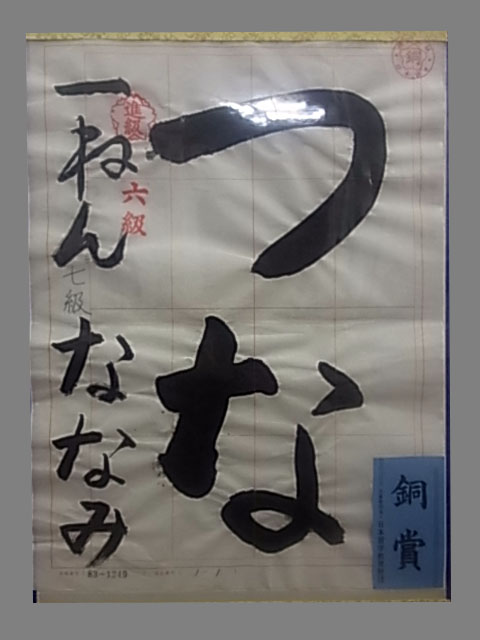 つな
一ねん ななみ
進級
六級
七級
銅
銅賞
83-1249